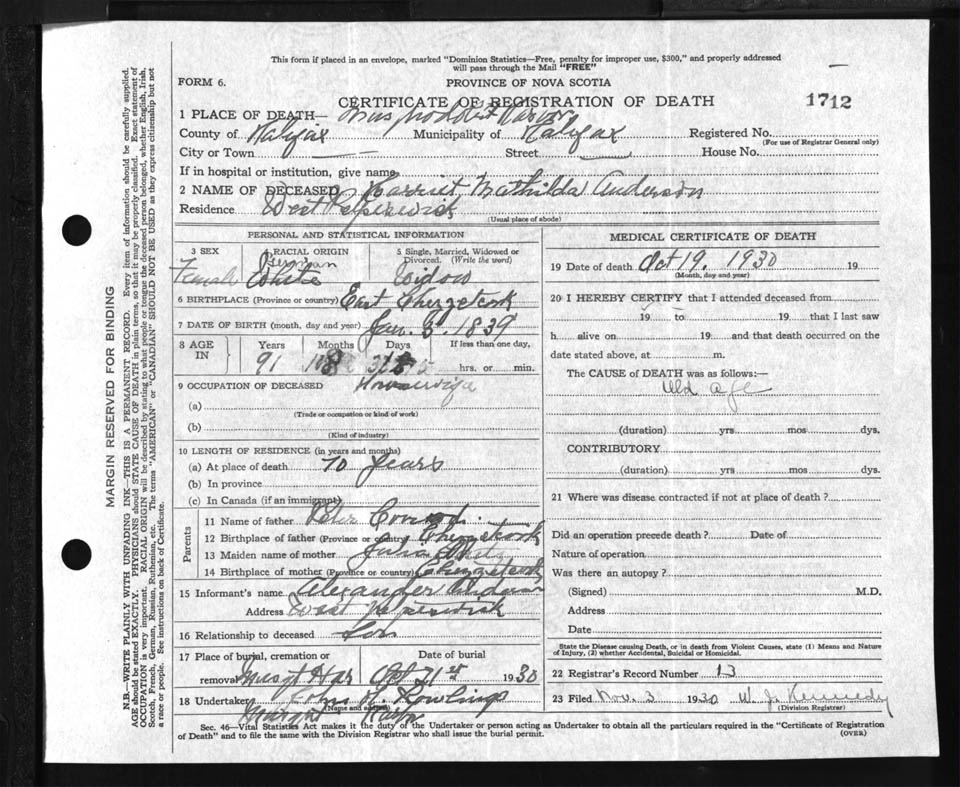 This form if placed in an envelope, marked "Dominion Statistics—Free, penalty for improper use, $300," and properly addressed
will pass through the Mail "FREE"
FORM 6.
PROVINCE OF NOVA SCOTIA
CERTIFICATE OF REGISTRATION OF DEATH
1712
1 PLACE OF DEATH—
County of Halifax Municipality of Halifax Registered No.
(For use of Registrar General only)
City or Town Street House No.
If in hospital or institution, give name
2 NAME OF DECEASED Harriet Mathilda Anderson
Residence West Petpeswick
(Usual place of abode)
PERSONAL AND STATISTICAL INFORMATION
3 SEX
Female
4 RACIAL ORIGIN
German
White
5 Single, Married, Widowed or
Divorced. (Write the word)
Widow
6 BIRTHPLACE (Province or country) East Chezetcook
7 DATE OF BIRTH (month, day and year) Jan. 3d. 1839
8 AGE
IN
Years Months Days If less than one day,
91 hrs. or min.
9 OCCUPATION OF DECEASED Housewife
(a)
(Trade or occupation or kind of work)
(b)
(Kind of industry)
10 LENGTH OF RESIDENCE (in years and months)
(a) At place of death 70 years
(b) In province
(c) In Canada (if an immigrant)
Parents
11 Name of father Peter Conrod
12 Birthplace of father (Province or country) Chezetcook
13 Maiden name of mother Julia
14 Birthplace of mother (Province or country) Chezzetcook
15 Informant's name Alexander Anderson
Address West Petpeswick
16 Relationship to deceased Son
17 Place of burial, cremation or Date of burial
removal Musqt Har Oct 21st 1930
18 Undertaker John R. Rowlings
(Name and address)
Musqt Harbr
MEDICAL CERTIFICATE OF DEATH
19 Date of death Oct 19, 1930 19
(Month, day and year)
20 I HEREBY CERTIFY that I attended deceased from
19 to 19 that I last saw
h alive on 19 and that death occurred on the
date stated above, at m.
The CAUSE of DEATH was as follows:—
Old age
(duration) yrs mos dys.
CONTRIBUTORY
(duration) yrs mos dys.
21 Where was disease contracted if not at place of death?
Did an operation precede death? Date of
Nature of operation
Was there an autopsy?
(Signed) M.D.
Address
Date
State the Disease causing Death, or in death from Violent Causes, state (1) Means and Nature
of Injury, (2) whether Accidental, Suicidal or Homicidal.
22 Registrar's Record Number 13
23 Filed Nov. 3 1930 W. J. Kennedy
(Division Registrar)
Sec. 46—Vital Statistics Act makes it the duty of the Undertaker or person acting as Undertaker to obtain all the particulars required in the "Certificate of Registration
of Death" and to file the same with the Division Registrar who shall issue the burial permit.
(OVER)
MARGIN RESERVED FOR BINDING
N.B.—WRITE PLAINLY WITH UNFADING INK—THIS IS A PERMANENT RECORD. Every item of information should be carefully supplied.
AGE should be stated EXACTLY. PHYSICIANS should STATE CAUSE OF DEATH in plain terms, so that it may be properly classified. Exact statement of
OCCUPATION is very important. RACIAL ORIGIN will be described by stating to what people or tongue the deceased person belonged, whether English, Irish,
Scotch, French, German, Russian, Ruthenian, etc. The terms "AMERICAN" or "CANADIAN" SHOULD NOT BE USED as they express citizenship but not
a race or people. See instructions on back of Certificate.